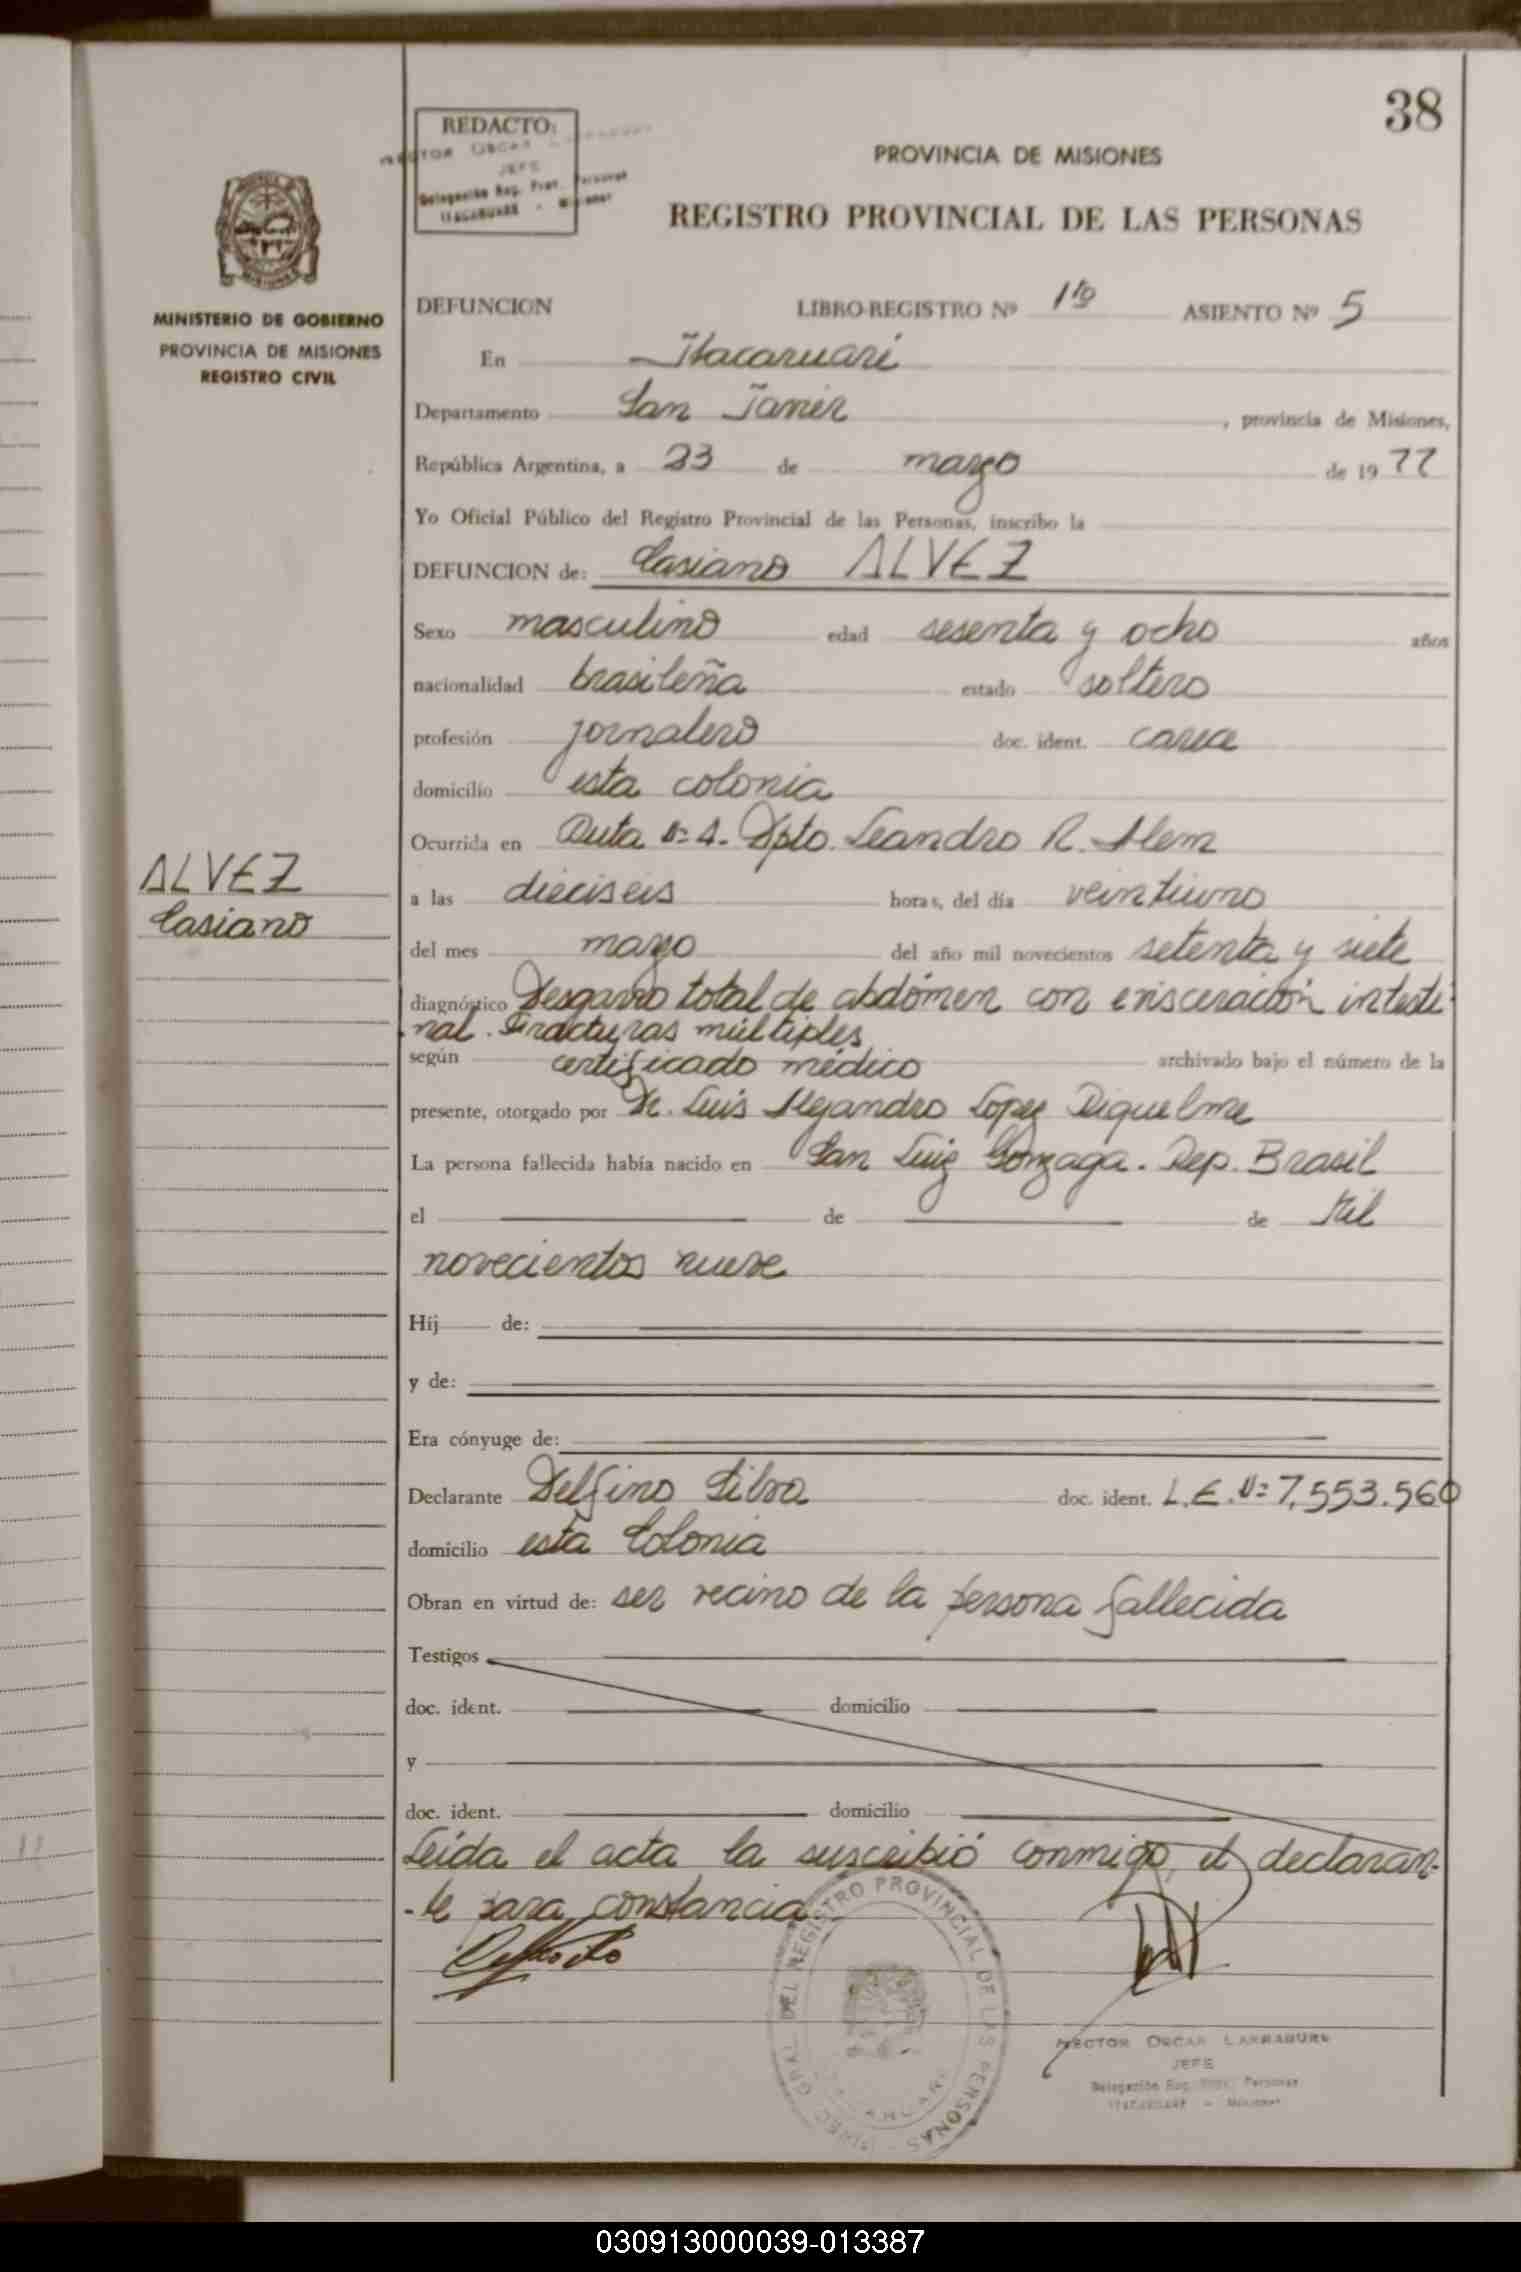 38
REDACTO:
HECTOR OSCAR LARRABURE
JEFE
Delegación Reg. Prov. Personas
ITACARUARE - Misiones
PROVINCIA DE MISIONES
REGISTRO PROVINCIAL DE LAS PERSONAS
MINISTERIO DE GOBIERNO
PROVINCIA DE MISIONES
REGISTRO CIVIL
DEFUNCION LIBRO-REGISTRO Nº 1ro ASIENTO Nº 5
En Itacaruaré
Departamento San Javier, provincia de Misiones,
República Argentina, a 23 de marzo de 1977
Yo Oficial Público del Registro Provincial de las Personas, inscribo la
DEFUNCION de: Casiano ALVEZ
Sexo masculino edad sesenta y ocho años
nacionalidad brasileña estado soltero
profesión jornalero doc. ident. carece
domicilio esta colonia
Ocurrida en Ruta Nº 4. Dpto. Leandro N. Alem
ALVEZ
Casiano
a las dieciseis horas, del día veintiuno
del mes marzo del año mil novecientos setenta y siete
diagnóstico Desgarro total de abdómen con evisceración intesti-
nal. Fracturas múltiples
según certificado médico archivado bajo el número de la
presente, otorgado por Dr. Luis Alejandro Lopez Riquelme
La persona fallecida había nacido en San Luiz Gonzaga. Rep. Brasil
el de de Mil
novecientos nueve
Hij de:
y de:
Era cónyuge de:
Declarante Delfino Silva doc. ident. L.E. Nº 7.553.560
domicilio esta Colonia
Obran en virtud de: ser vecino de la persona fallecida
Testigos
doc. ident. domicilio
y
doc. ident. domicilio
Leída el acta la suscribió conmigo, el declaran-
-te para constancia
DIREC. GRAL. DEL REGISTRO PROVINCIAL DE LAS PERSONAS
HECTOR OSCAR LARRABURE
JEFE
Delegación Reg. Prov. Personas
ITACARUARE - Misiones
030913000039-013387